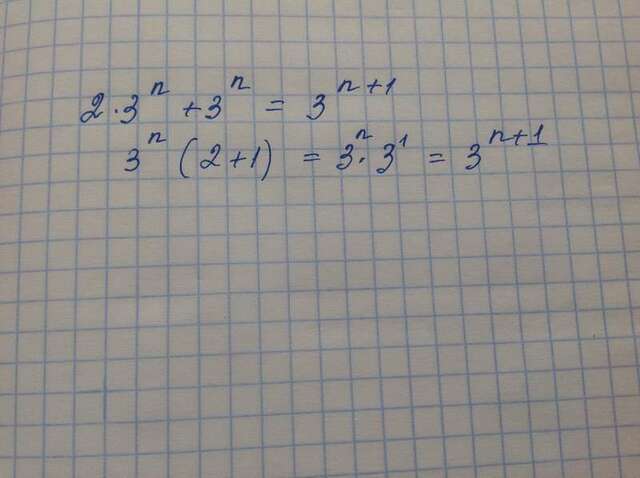 2·3ⁿ + 3ⁿ = 3ⁿ⁺¹
3ⁿ (2+1) = 3ⁿ·3¹ = 3ⁿ⁺¹